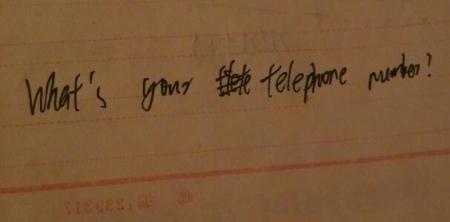 What's your telephone number?